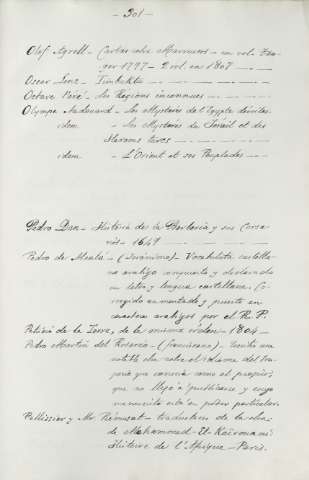 - 301 -
Olof Agrell - Cartas sobre Marruecos - un vol. Tan-
ger 1797 - 2 vol. en 1807
Oscar Lenz - Timbuktu
Octave Veré - Las Regions inconnues
Olympe Audouard - Les Mystères de l'Egypte dévoilés
idem - Les Mystères du Serail et des
Harems turcs
idem - L'Orient et ses Peuplades
Pedro Dan - Historia de la Berberia y sus Corsa-
rios - 1649
Pedro de Alcalá - (Jerónimo) - Vocabulista castella-
no arabigo compuesto y declarado
en letra y lengua castellana. Co-
rregido aumentado y puesto en
caracteres arabigos por el R. P.
Patricio de la Torre, de la misma orden - 1804
Pedro Martin del Rosario - (franciscano). Escribió una
notable obra sobre el idioma del
que conocia como el propio;
que no llegó á publicarse y cuyo
manuscrito está en poder particular.
Pellissier y Mr Rémusat - traductores de la obra
de Mohammed - El - Kairouani
Histoire de l'Afrique - Paris.